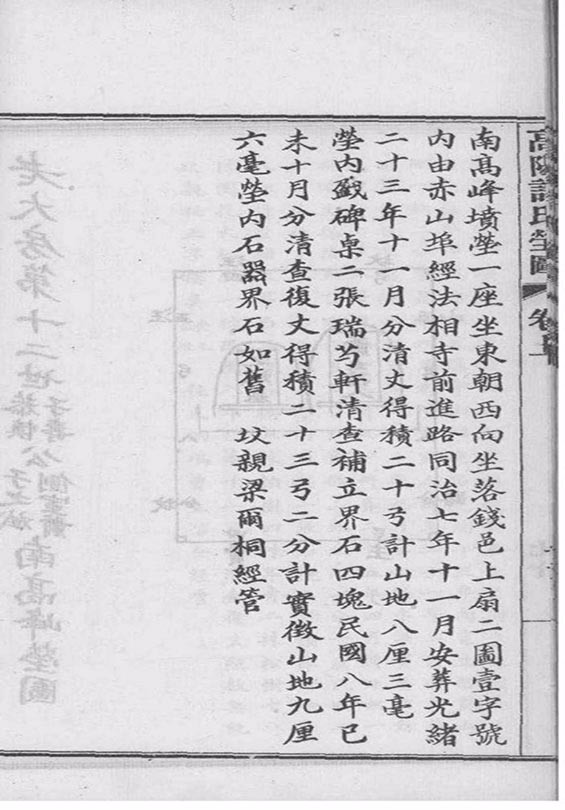 高陽許氏塋圖 卷
南髙峰墳塋一座坐東朝西向坐落錢邑上扇二圖壹字號
内由赤山埠經法相寺前進路同治七年十一月安葬光緒
二十三年十一月分清丈得積二十弓計山地八厘三毫
塋内礮碑桌二張瑞芍軒清查補立界石四塊民國八年己
未十月分清查復丈得積二十三弓二分計實徵山地九厘
六毫塋内石器界石如舊 坟親梁爾桐經管